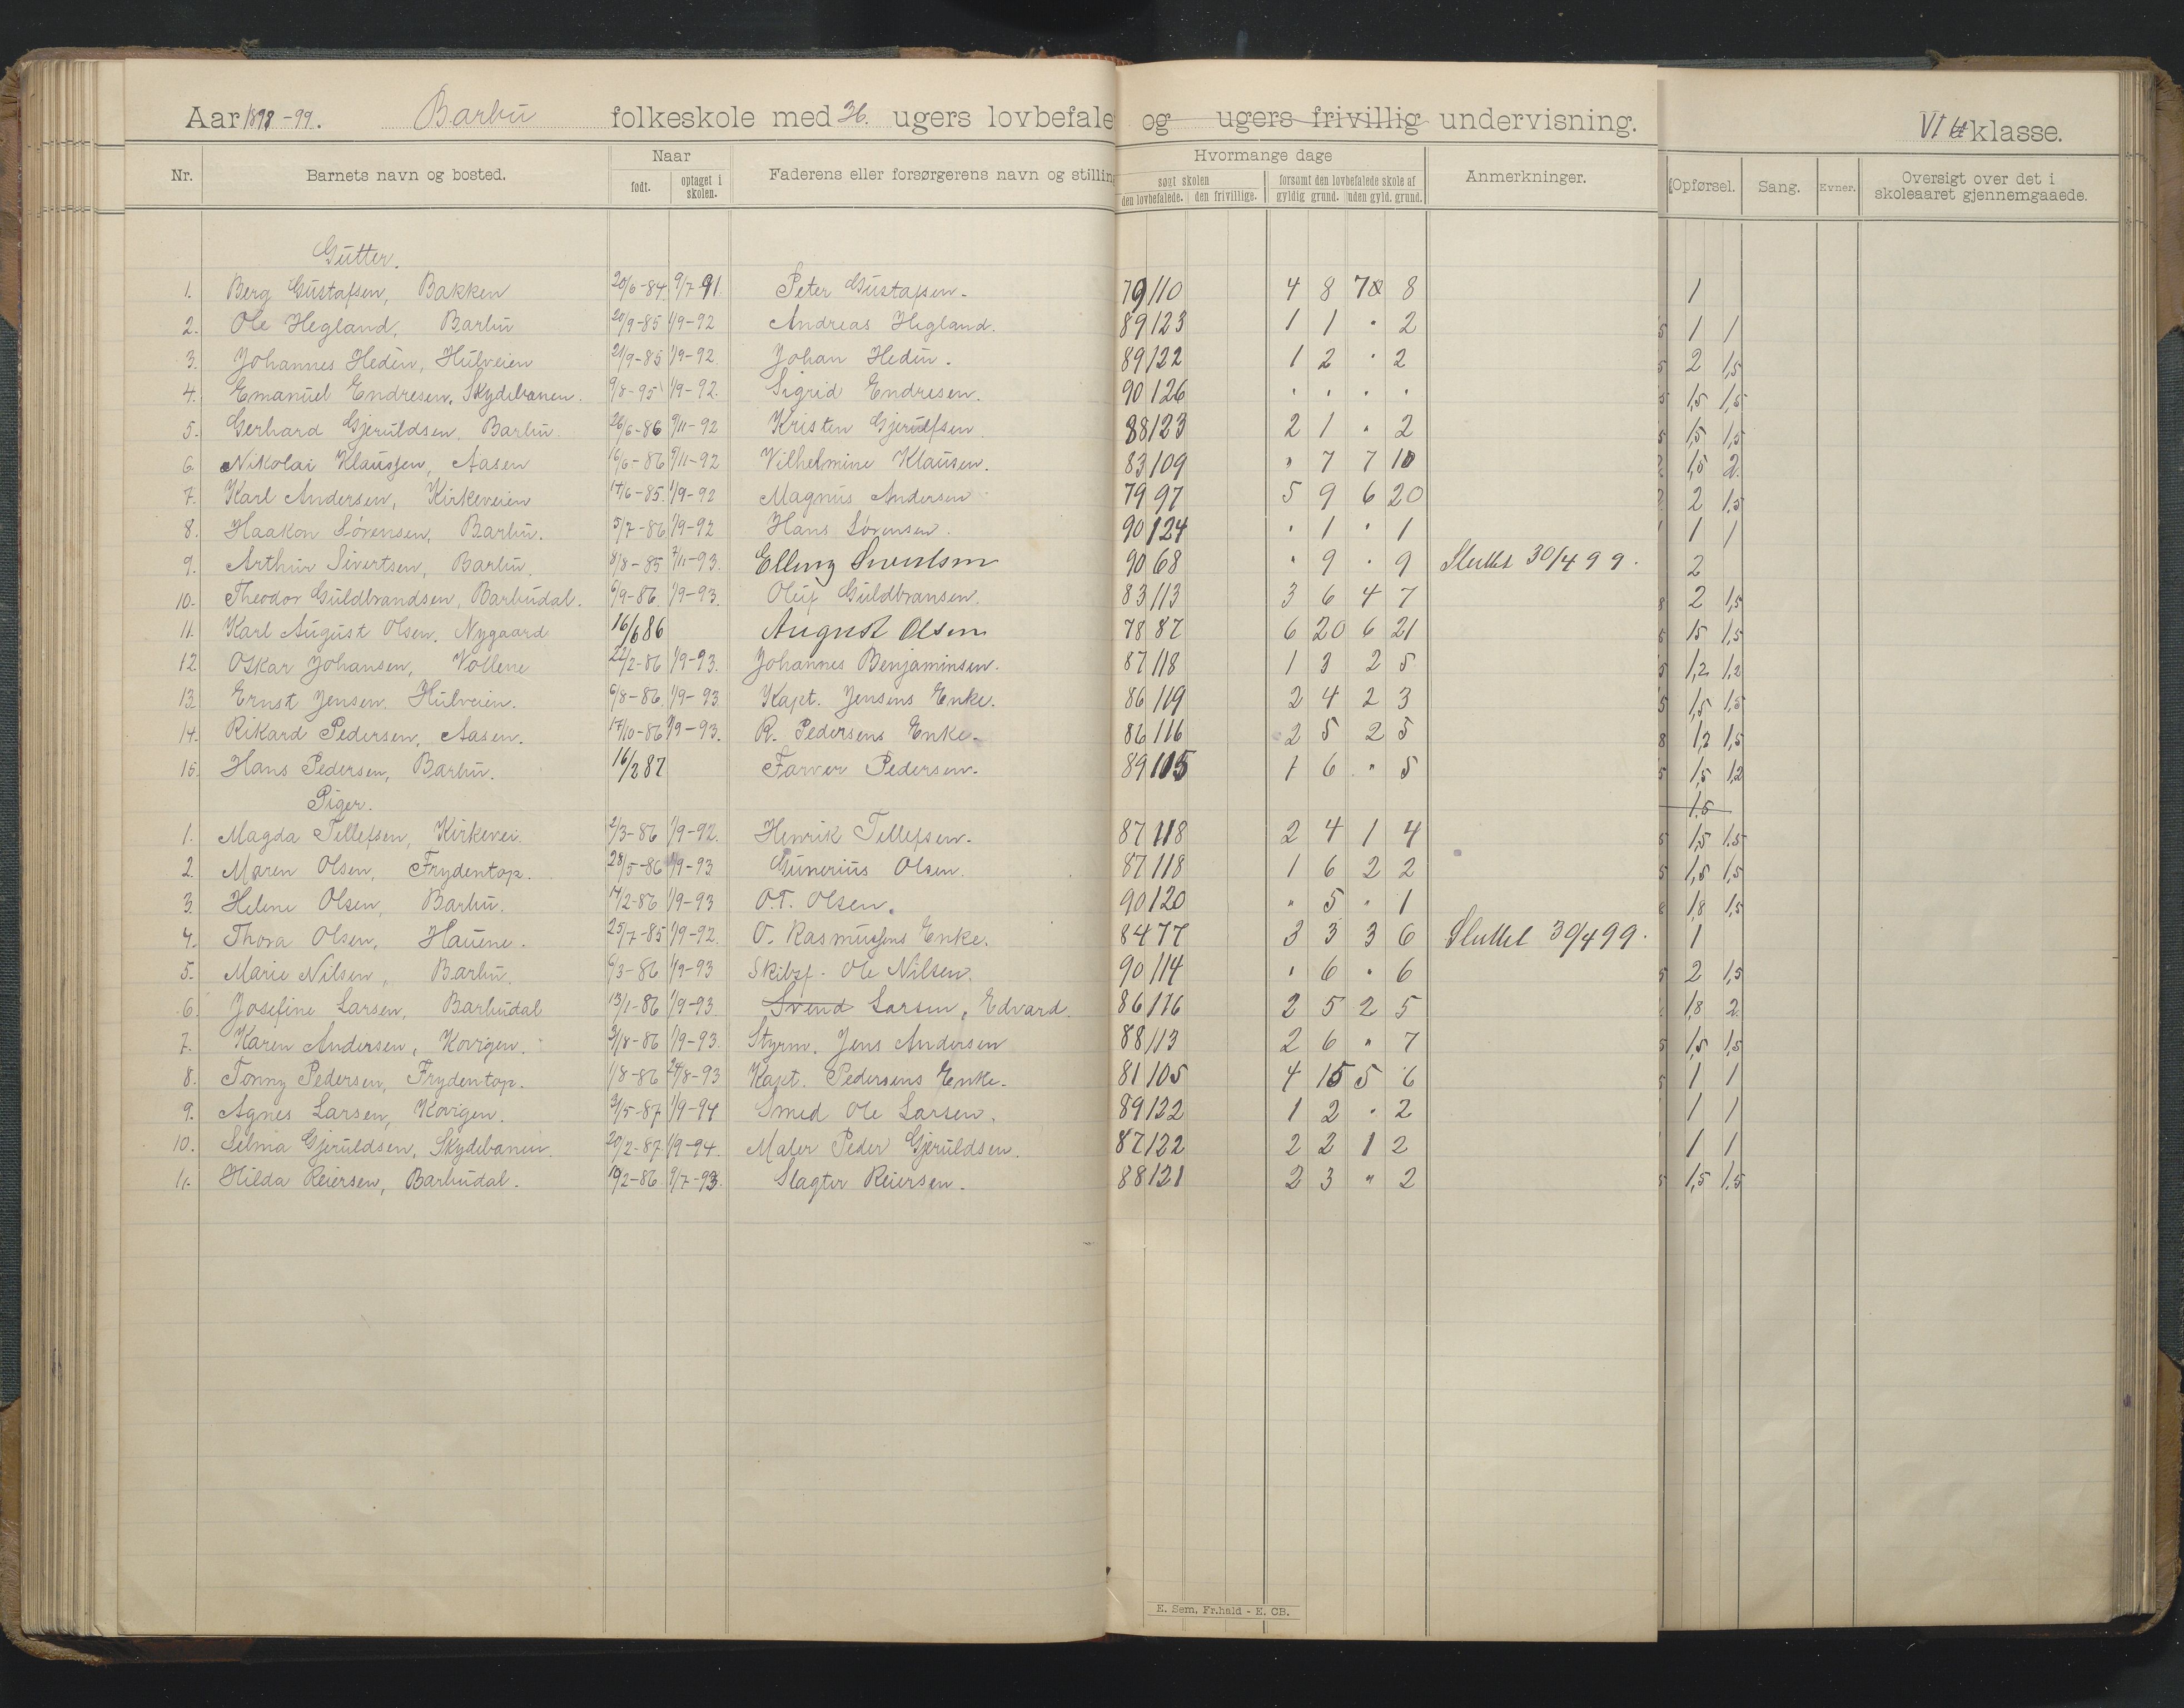 Aar 1898-99. Barbu folkeskole med 36. ugers lovbefale og ugers frivillig undervisning. VI klasse.
Nr. Barnets navn og bosted. Naar født. optaget i skolen. Faderens eller forsørgerens navn og stilling Hvormange dage søgt skolen den lovbefalede. den frivillige. forsømt den lovbefalede skole af gyldig grund. uden gyld. grund. Anmerkninger. Opførsel. Sang. Evner. Oversigt over det i skoleaaret gjennemgaaede.
Gutter.
1. Berg Gustafsen, Bakken 20/6-84 9/7-91. Peter Gustafsen. 79 110 4 8 7 8 1
2. Ole Hegland, Barbu 20/9-85 1/9-92 Andreas Hegland. 89 123 1 1 " 2 1 1
3. Johannes Hedèn, Hulveien 21/9-85 1/9-92. Johan Hedin. 89 122 1 2 " 2 2 1,5
4. Emanuel Endresen, Skydebanen. 9/8-95 1/9-92. Sigrid Endresen. 90 126 " " " " 1,5 1,5
5. Gerhard Gjeruldsen, Barbu. 26/6-86 9/11-92 Kristen Gjerulfsen 88 123 2 1 " 2 1,5 1,5
6. Nikolai Klaussen, Aasen 16/6-86 9/11-92 Vilhelmine Klausen. 83 109 " 7 7 10 1,5 2.
7. Karl Andersen, Kirkeveien 17/6-85. 1/9-92 Magnus Andersen 79 97 5 9 6 20 2 1,5
8. Haakon Sørensen, Barbu. 5/7-86 1/9-92 Hans Sørensen. 90 124 " 1 " 1 1 1
9. Arthur Sivertsen, Barbu. 8/8-85 7/11-93. Elling Sivertsen 90 68 " 9 " 9 Sluttet 30/4 99. 2
10. Theodor Guldbrandsen, Barbudal. 6/9-86 1/9-93. Oluf Guldbransen. 83 113 3 6 4 7 2 1,5
11. Karl August Olsen, Nygaard 16/6 86 August Olsen 78 87 6 20 6 21 15 1,5
12 Oskar Johansen, Vollene 22/2-86 1/9-93. Johannes Benjaminsen. 87 118 1 3 2 5 1,2 1,2
13. Ernst Jensen, Hulveien. 6/8-86. 1/9-93 Kapt. Jensens Enke. 86 119 2 4 2 3 1,5 1,5
14. Rikard Pedersen, Aasen. 17/10-86 1/9-93. R. Pedersens Enke. 86 116 2 5 2 5 1,2 1,5
15. Hans Pedersen, Barbu. 16/2 87 Farver Pedersen. 89 115 1 6 " 5 1,5 1,2
Piger. 1,5
1. Magda Tellefsen, Kirkevei. 2/3-86 1/9-92. Henrik Tellefsen. 87 118 2 4 1 4 1,5 1,5
2. Maren Olsen, Frydentop. 28/5-86 1/9-93 Gunerius Olsen. 87 118 1 6 2 2 1,5 1,5
3. Helene Olsen, Barbu. 14/2-86 1/9-93 O.T. Olsen. 90 120 " 5 " 1 1,8 1,5
4. Thora Olsen, Hauene. 25/7-85 1/9-92. O. Rasmussens Enke. 84 77 3 3 3 6 Sluttet 30/4 99. 1
5. Marie Nilsen, Barbu. 6/3-86 1/9-93 Skibsf. Ole Nilsen. 90 114 " 6 " 6 2 1,5
6. Josefine Larsen, Barbudal 13/1-86 1/9-93. Svend Larsen, Edvard. 86 116 2 5 2 5 1,8 2.
7. Karen Andersen, Kovigen. 3/8-86 1/9-93. Styrm. Jens Andersen 88 113 2 6 " 7 1,5 1,5
8. Tonny Pedersen, Frydentop. 1/8-86 24/8-93 Kapt. Pedersens Enke. 81 105 4 15 5 6 1 1
9. Agnes Larsen, Kovigen. 3/5-87 1/9-94 Smed Ole Larsen. 89 122 1 2 " 2 1 1
10. Selma Gjeruldsen, Skydebanen. 20/2-87 1/9-94. Maler Peder Gjeruldsen. 87 122 2 2 1 2 1 1
11. Hilda Reiersen, Barbudal. 19/2-86. 9/7-93. Slagter Reiersen. 88 121 2 3 " 2 1,5 1,5
E. Sem, Fr.hald - E. CB.